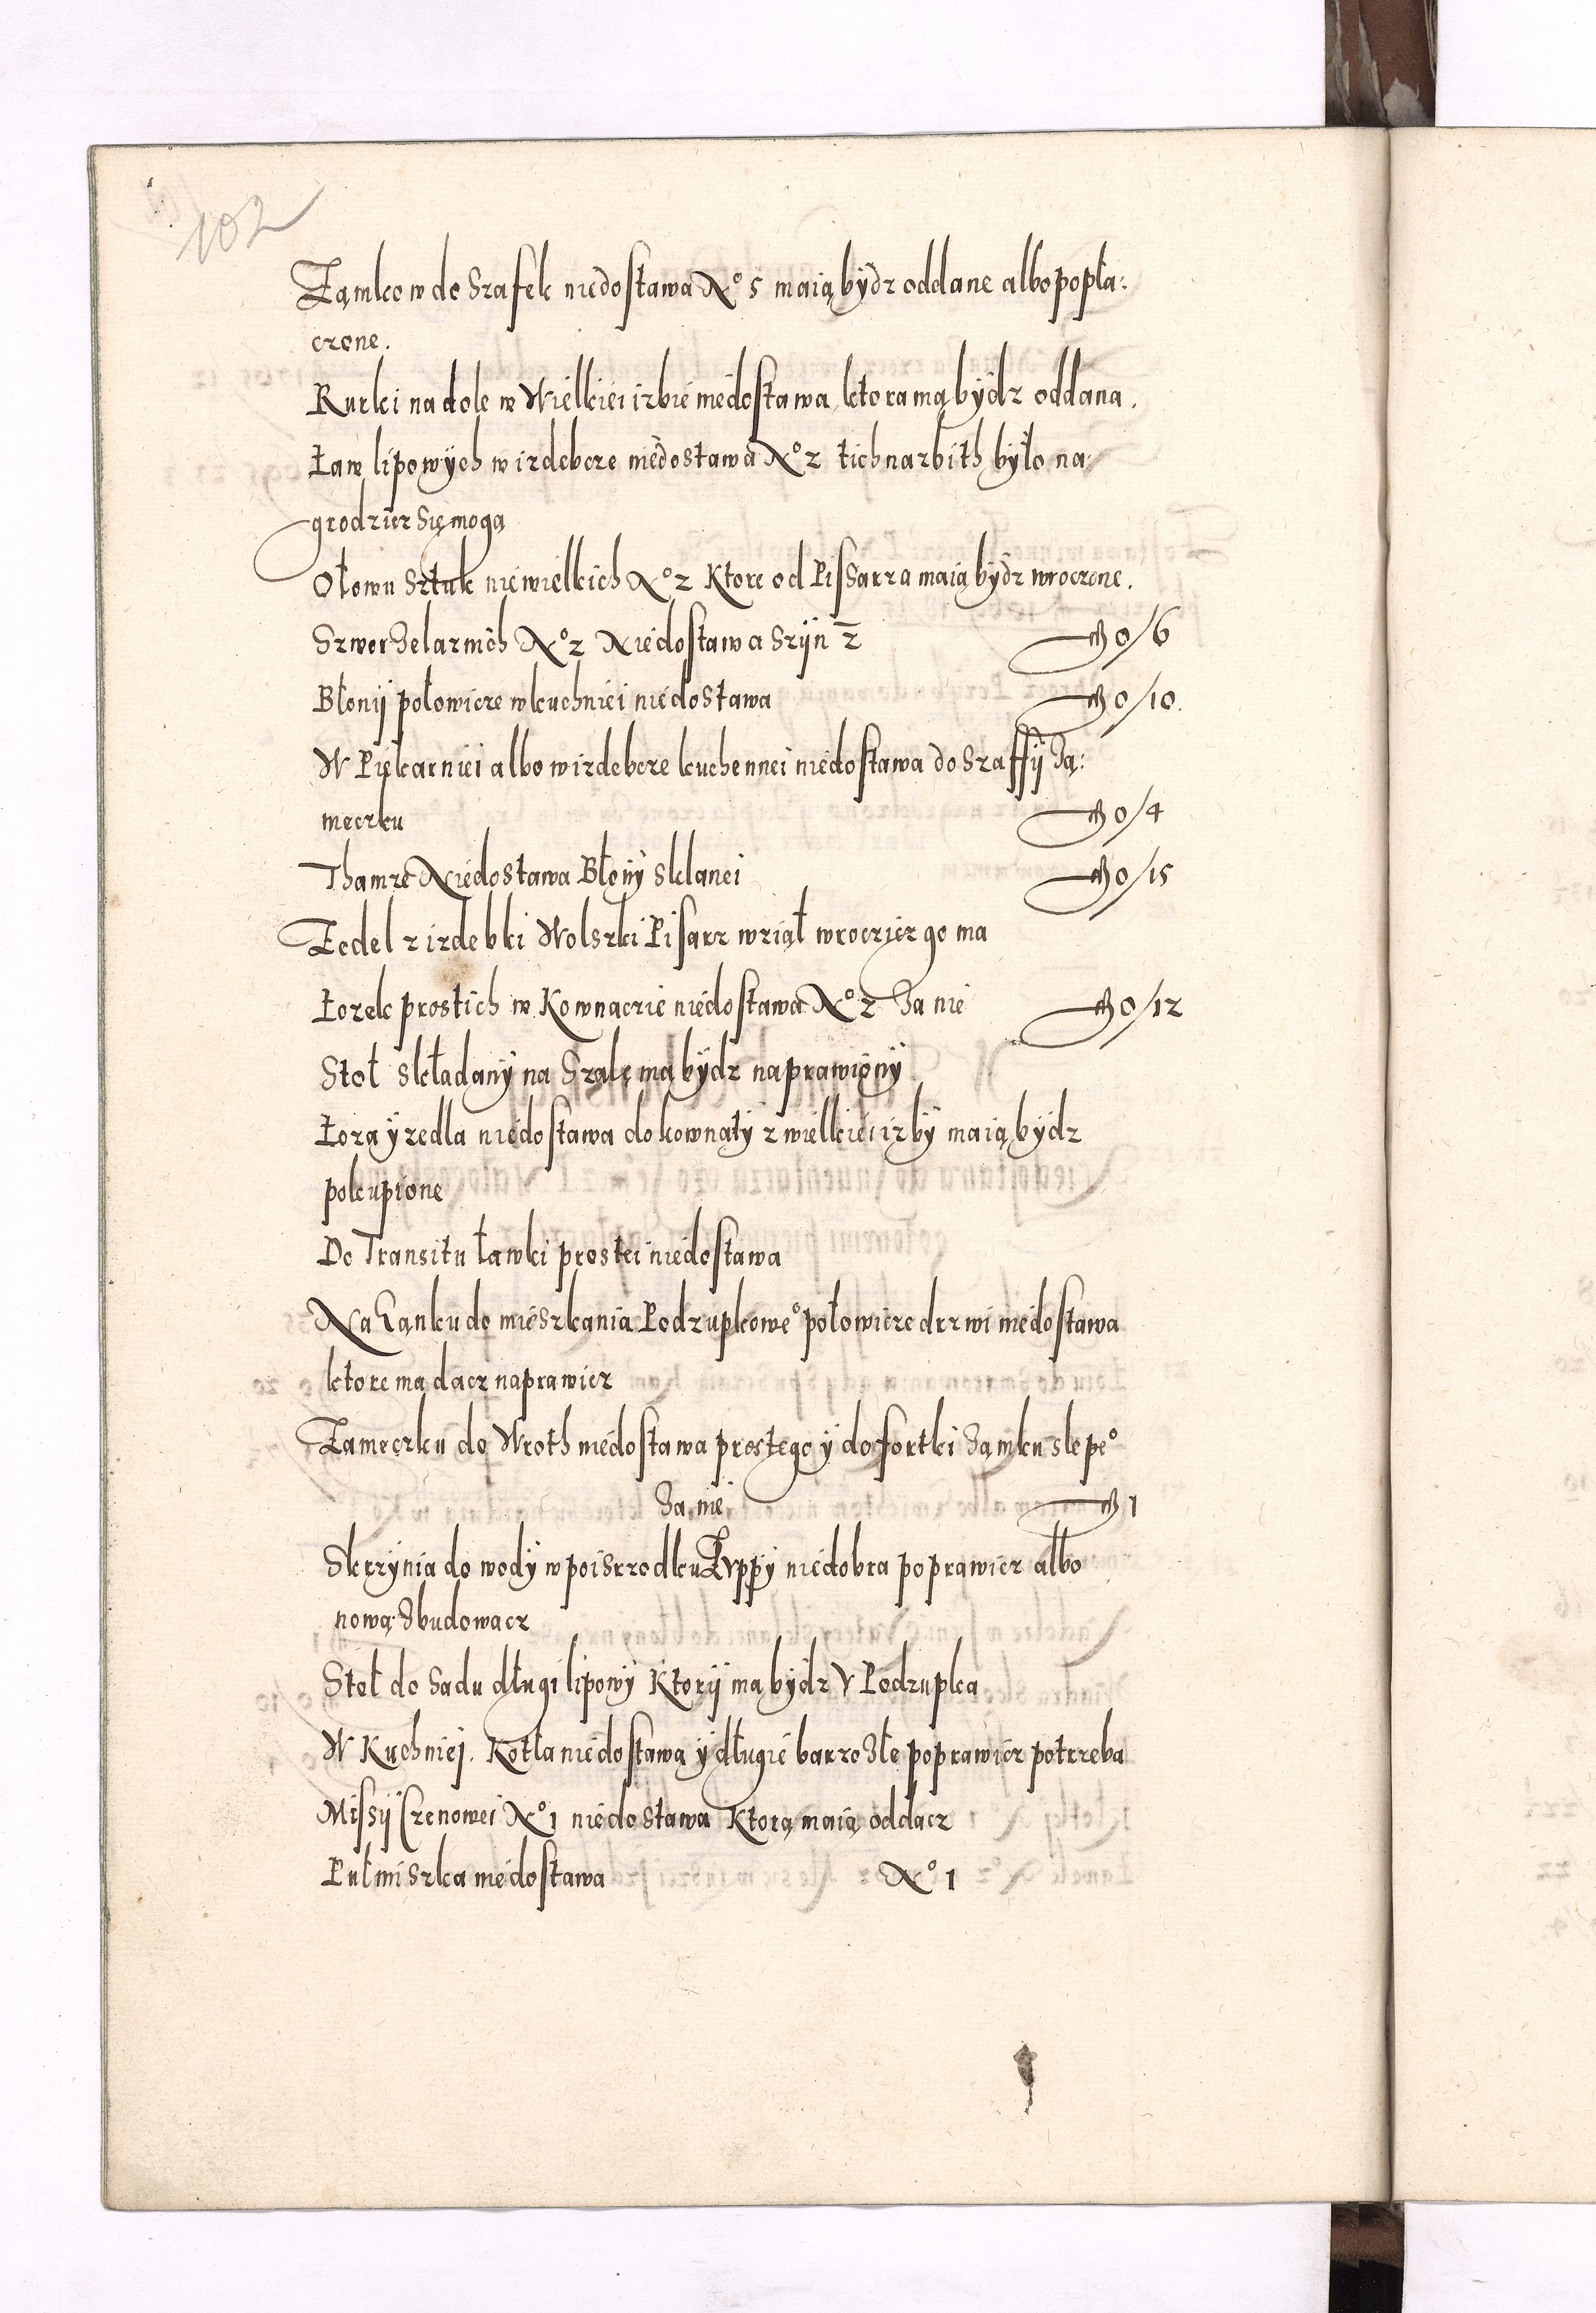 102
Zamkow do Szafek niedostawa No 5 maią bydz oddane albo popła:
czone.
Rurki na dole w Wielkiei izbie niedostawa, ktora ma bydz oddana.
Ław lipowych w izdebcze niedostawa No 2 tich narbith było na
grodzicz się mogą
Ołowu Sztuk niewielkich No 2 Ktore od Pissarza maią bydz wroczone.
No 2 Niedostawa Szyn 2 0/6
Błony połowicze w kuchniei niedostawa 0/10.
W Piekarniei albo w izdebcze kuchennei niedostawa do Szaffy Za:
meczku 0/4
Thamze Niedostawa Błony sklanei 0/15
Zedel z izdebki Wolszki Pisarz wziął wroczicz go ma
Łozek prostich w Kownaczie niedostawa No 2 Za nie 0/12
Stoł składany na Szalę ma bydz naprawiony
Łoza y zedla niedostawa do kownaty z wielkiei izby maią bydz
pokupione
Do Transitu ławki prostei niedostawa
Na Zanku do mieszkania Podzupkoweo połowicze drzwi niedostawa
ktore ma dacz naprawicz
Zameczku do Wroth niedostawa prostego y do fortki Zamku slepeo
Za nie 1
Skrzynia do wody w poiszrodku Zuppy niedobra poprawicz albo
nową Zbudowacz
Stoł do Sadu długi lipowy Ktory ma bydz V Podzupka
W Kuchniej. Kotła niedostawa y długie barzo Złe poprawicz potrzeba
Missy Czenowei No 1 niedostawa Ktorą maią oddacz
Pułmiszka niedostawa No 1